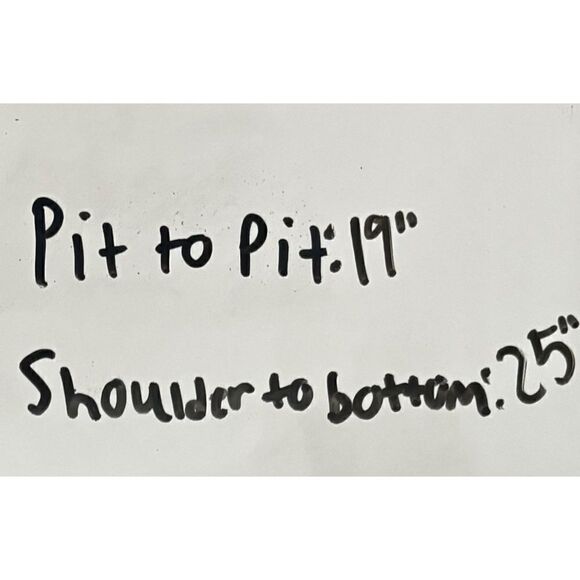 Pit to Pit: 19"
Shoulder to bottom: 25"